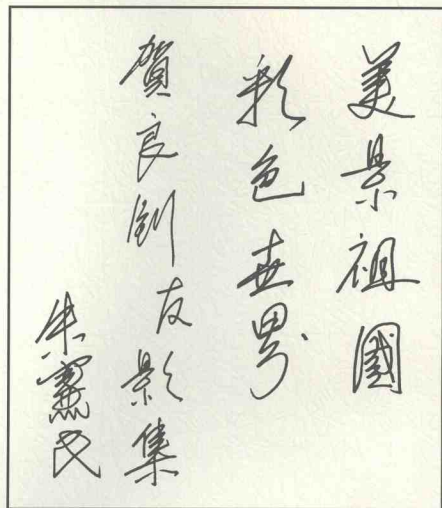 美景祖國
彩色世界
賀良釗友影集
朱憲民